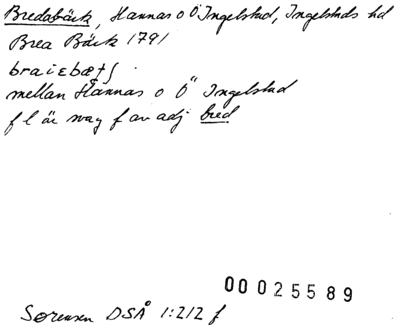 Bredabäck, Hannas o Ö Ingelstad, Ingelstads hd
Brea Bäck 1791
mellan Hannas o Ö Ingelstad
f l är svag f av adj bred
00025589
Sørensen DSÅ 1:212 f